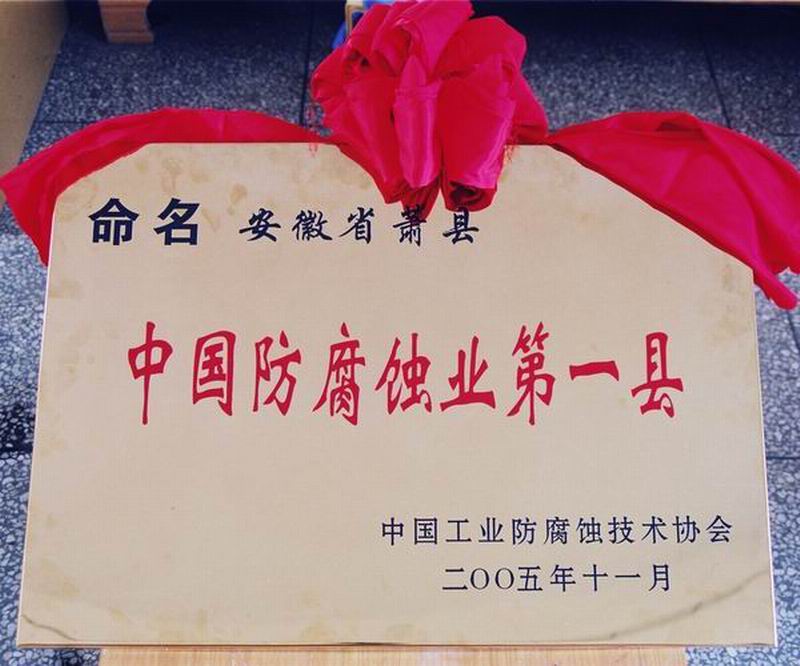 命名 安徽省萧县
中国防腐蚀业第一县
中国工业防腐蚀技术协会
二〇〇五年十一月